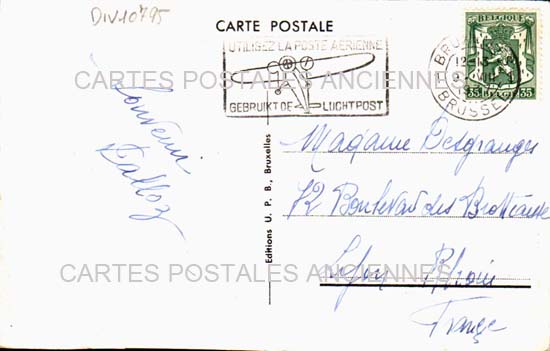 DIV10795
CARTE POSTALE
UTILISEZ LA POSTE AERIENNE
GEBRUIKT DE LUCHTPOST
BELGIQUE
35 35
BRUSSEL
CARTES POSTALES ANCIENNES
Souvenir
Dalloz
Editions U. P. B., Bruxelles
Madame Desgranges
72 Boulevard des
Rhône
France
CARTES POSTALES ANCIENNES